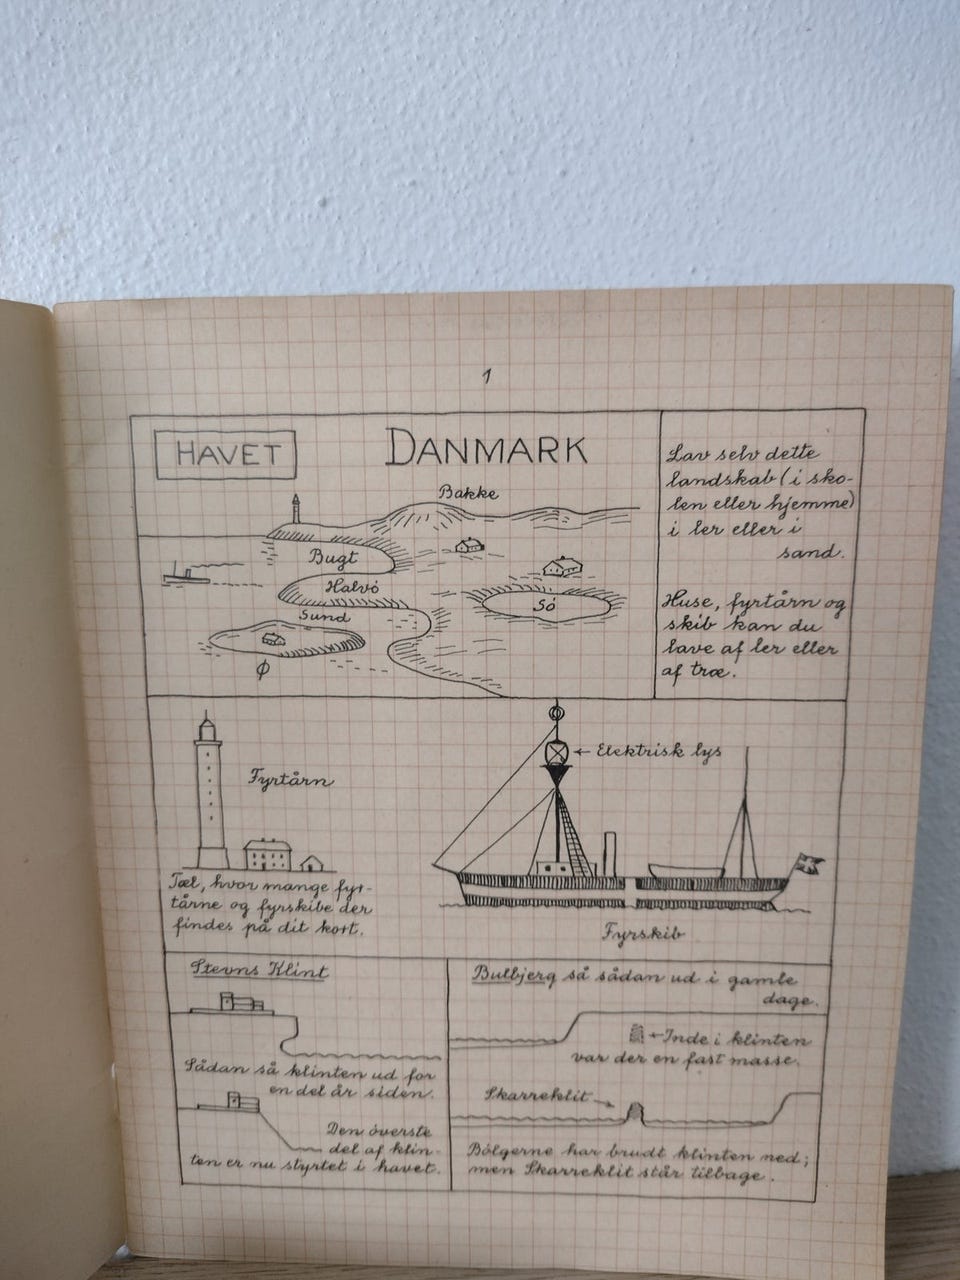 1
HAVET
DANMARK
Bakke
Bugt
Halvö
Sund
Sö
Ø
Lav selv dette
landskab (i sko-
len eller hjemme)
i ler eller i
sand.
Huse, fyrtårn og
skib kan du
lave af ler eller
af træ.
Fyrtårn
Tæl, hvor mange fyr-
tårne og fyrskibe der
findes på dit kort.
← Elektrisk lys
Fyrskib
Stevns Klint
Sådan så klinten ud for
en del år siden.
Den överste
del af klin-
ten er nu styrtet i havet.
Bulbjerg så sådan ud i gamle
dage.
←Inde i klinten
var der en fast masse.
Skarreklit→
Bölgerne har brudt klinten ned;
men Skarreklit står tilbage.